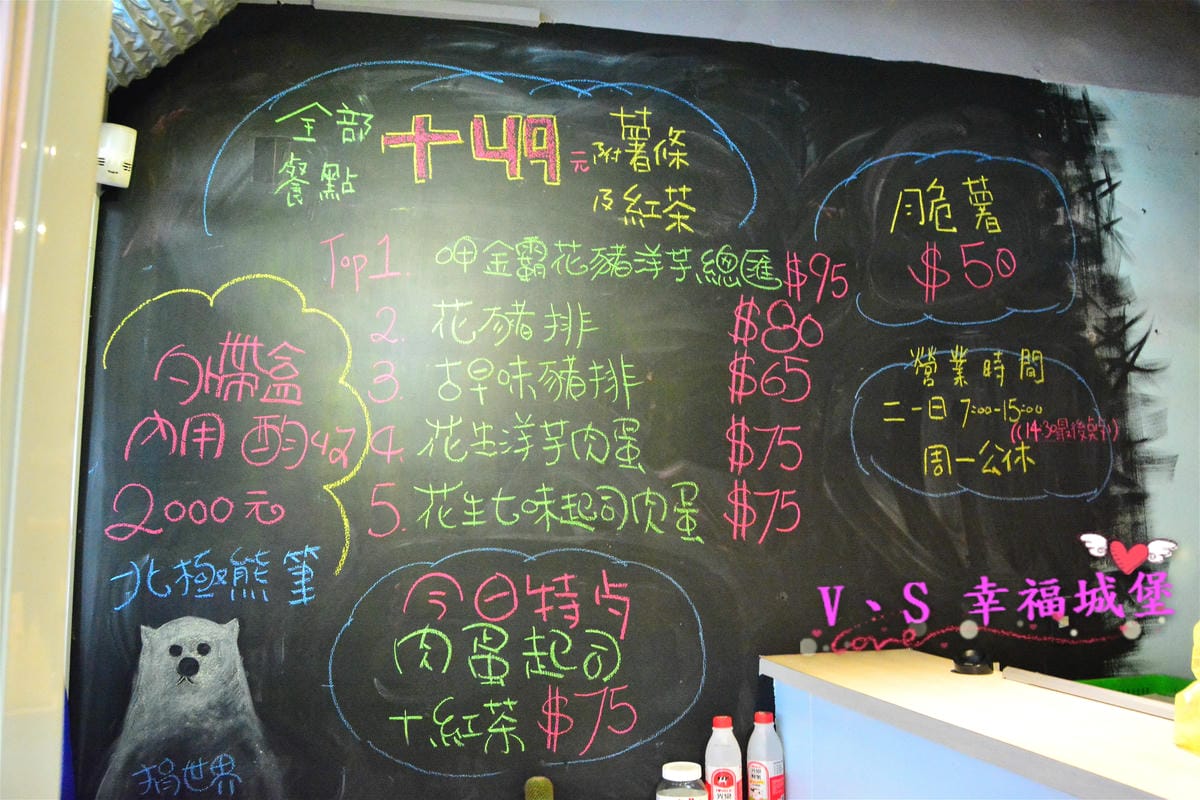 全部
餐點
+49元
附薯條
及紅茶
Top1. 呷金霸花豬洋芋總匯 $95
2. 花豬排 $80
3. 古早味豬排 $65
4. 花生洋芋肉蛋 $75
5. 花生七味起司肉蛋 $75
外帶盒
內用酌收
2000元
北極熊筆
世界
今日特点
肉蛋起司
+紅茶 $75
脆薯
$50
營業時間
二一日 7:00-15:00
(14:30最後點)
周一公休
V、S 幸福城堡
Love